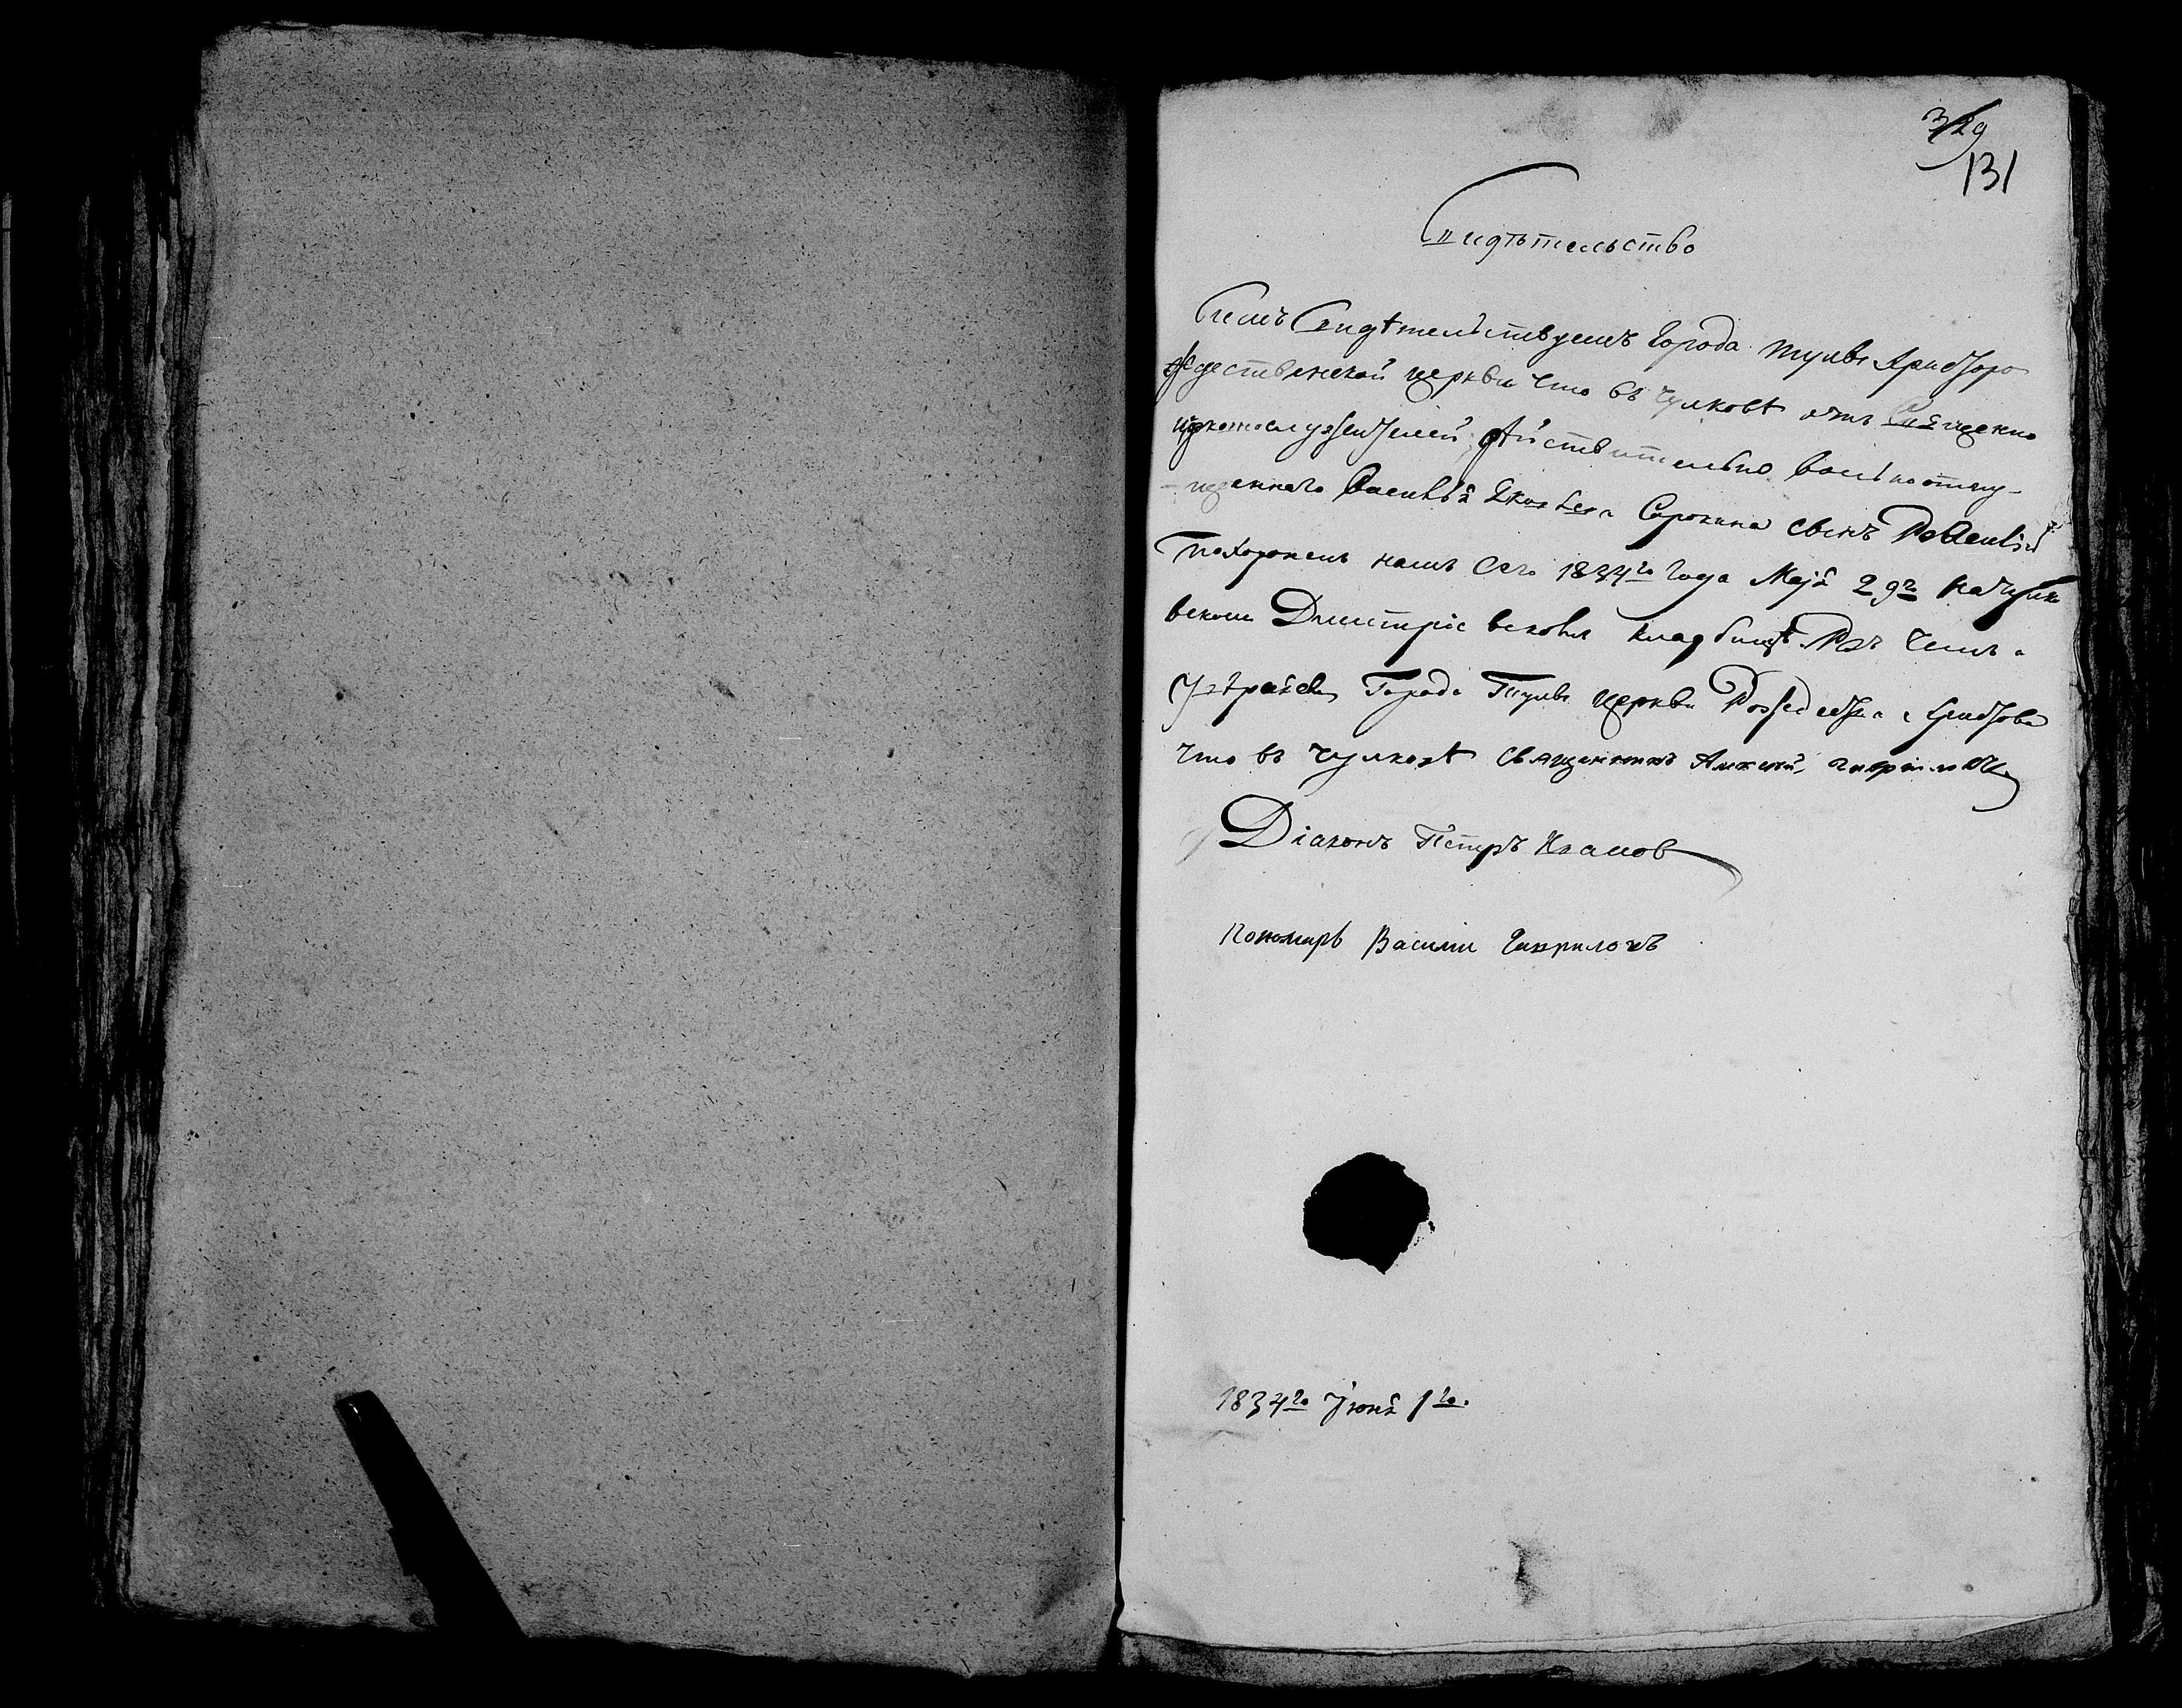 329
131
Свидѣтельство
Симъ Свидѣтельствуемъ Города тулы Христоро
ждественской церкви что въ Чулковѣ отъ Священно
церкнослужителей дѣйствительно вольноотпу-
щеннаго Василья Яковлева Сорокина сынъ
похороненъ нами сего 1834го Года Маја 29го на чулко
вскомъ Димитріевскомъ кладбищѣ въ чемъ и
увѣряемъ Города Тулы церкви Рождества Христова
что въ Чулковѣ священникъ Алексей Гавриловъ
Діаконъ Петръ Ивановъ
пономарь Василий Гавриловъ
1834го Июня 1го.